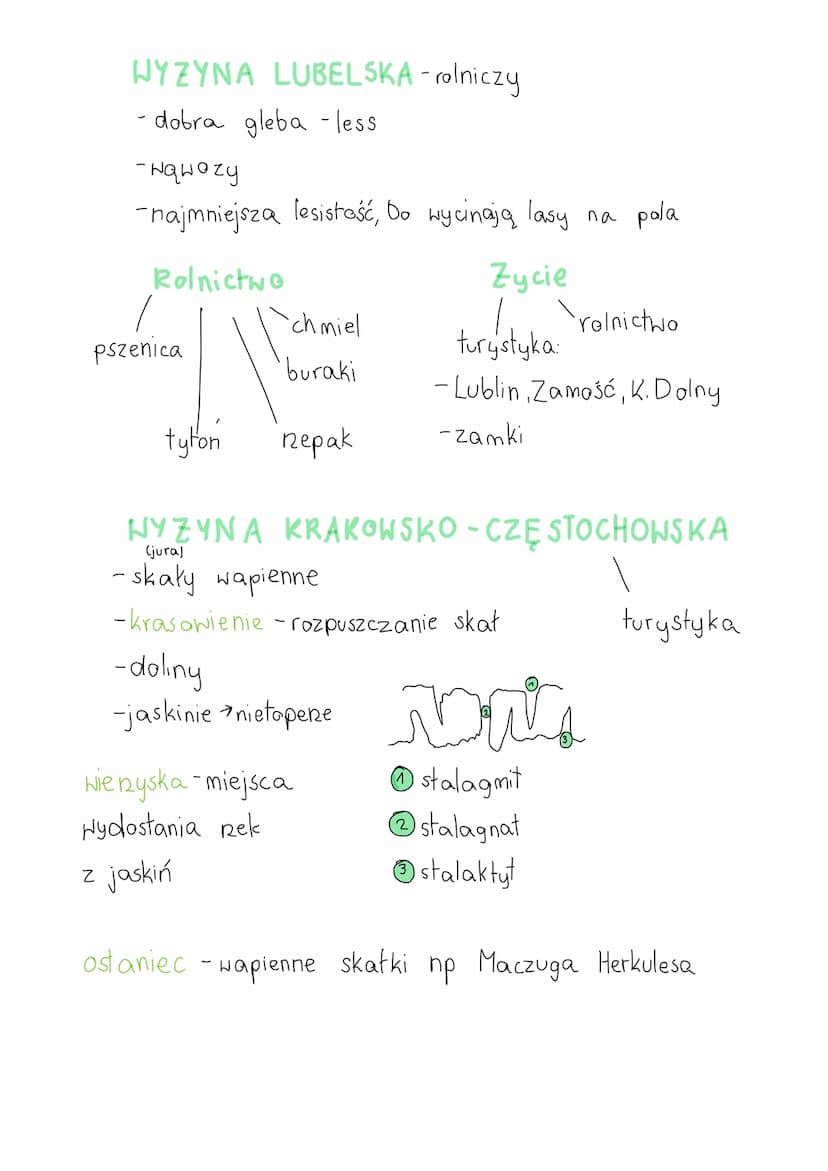 WYZYNA LUBELSKA - rolniczy
- dobra gleba - less
- wąwozy
- najmniejsza lesistość, bo wycinają lasy na pola
Rolnictwo
pszenica
tytoń
rzepak
buraki
chmiel
Zycie
turystyka:
- Lublin, Zamość, K. Dolny
- zamki
rolnictwo
WYZYNA KRAKOWSKO - CZĘSTOCHOWSKA
(jura)
- skały wapienne
- krasowienie - rozpuszczanie skał
- doliny
- jaskinie → nietoperze
turystyka
1
2
3
wierzyska - miejsca
wydostania rzek
z jaskiń
1 stalagmit
2 stalagnat
3 stalaktyt
ostaniec - wapienne skałki np Maczuga Herkulesa